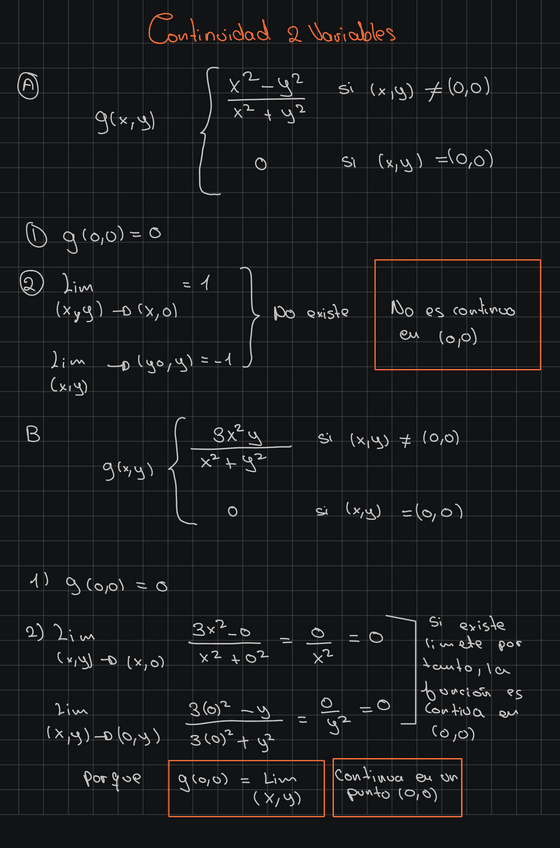 Continuidad 2 Variables
A
g(x,y) { x² - y² / x² + y² si (x,y) ≠ (0,0)
0 si (x,y) = (0,0)
① g(0,0) = 0
② Lim = 1
(x,y) → (x,0)
Lim → (y0,y) = -1
(x,y)
} No existe
No es continuo
en (0,0)
B
g(x,y) { 3x²y / x² + y² si (x,y) ≠ (0,0)
0 si (x,y) = (0,0)
1) g(0,0) = 0
2) Lim 3x² - 0 / x² + 0² = 0 / x² = 0
(x,y) → (x,0)
Lim 3(0)² - y / 3(0)² + y² = 0 / y² = 0
(x,y) → (0,y)
Si existe
limete por
tanto, la
función es
contiva en
(0,0)
porque g(0,0) = Lim
(x,y)
Continua en un
punto (0,0)